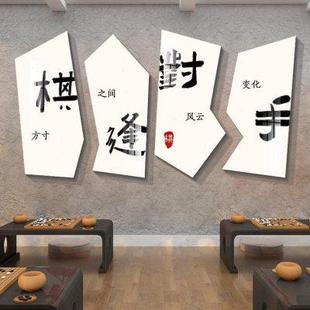 棋
方寸
之间
逢
對
风云
棋
变化
手